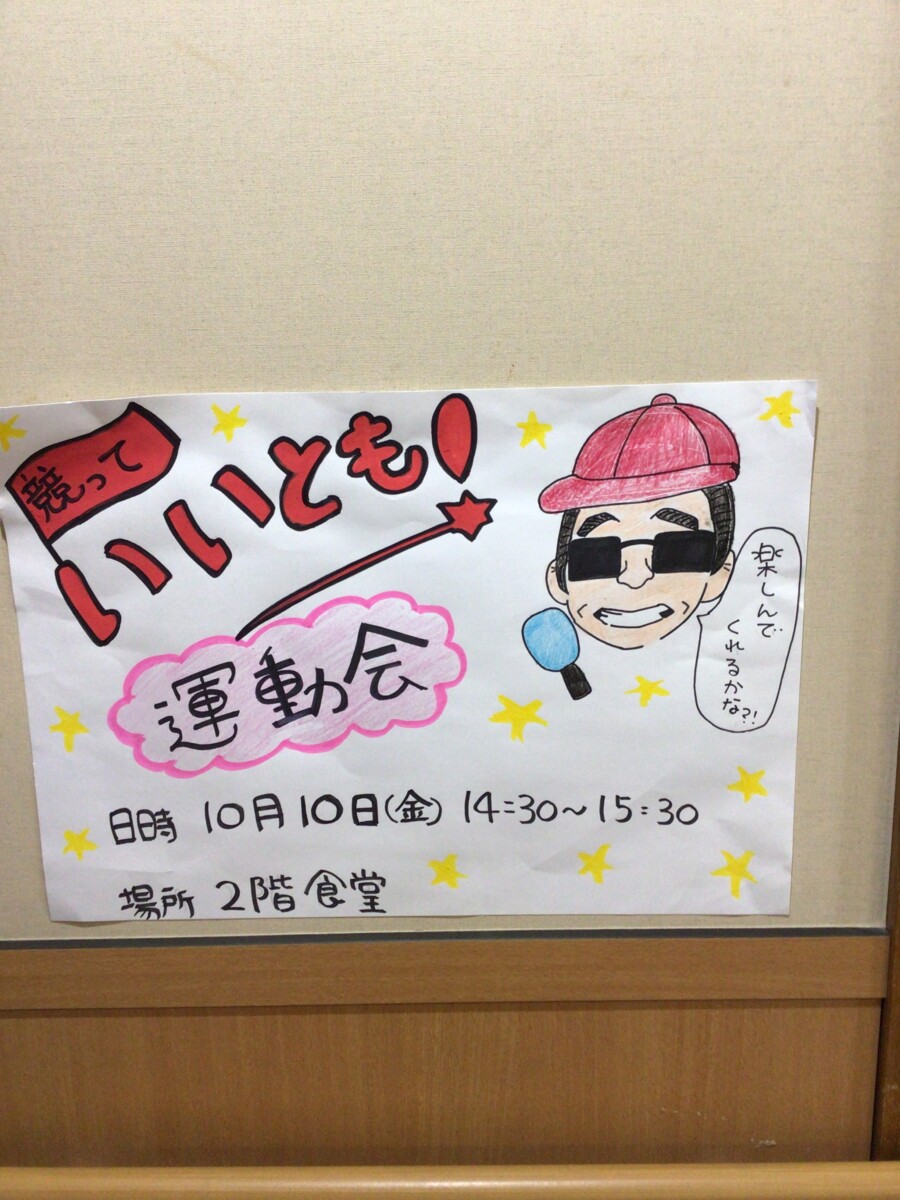 競って
いいとも!
運動会
楽しんで
くれるかな?!
日時 10月10日(金) 14:30~15:30
場所 2階食堂